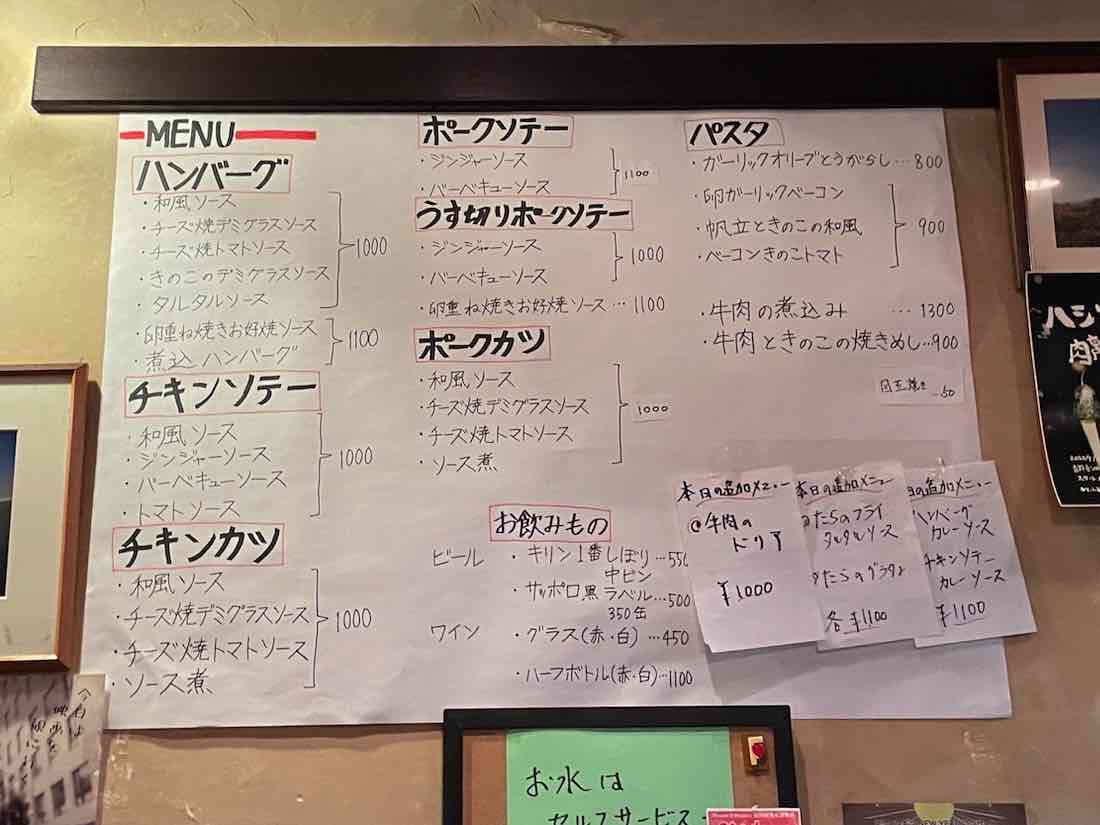 MENU
ハンバーグ
・和風ソース
・チーズ焼デミグラスソース
・チーズ焼トマトソース
・きのこのデミグラスソース
・タルタルソース
1000
・卵重ね焼きお好焼ソース
・煮込ハンバーグ
1100
チキンソテー
・和風ソース
・ジンジャーソース
・バーベキューソース
・トマトソース
1000
チキンカツ
・和風ソース
・チーズ焼デミグラスソース
・チーズ焼トマトソース
・ソース煮
1000
ポークソテー
・ジンジャーソース
・バーベキューソース
1100
うす切りポークソテー
・ジンジャーソース
・バーベキューソース
1000
・卵重ね焼きお好焼ソース…1100
ポークカツ
・和風ソース
・チーズ焼デミグラスソース
・チーズ焼トマトソース
・ソース煮
1000
お飲みもの
ビール ・キリン1番しぼり…550
中ビン
・サッポロ黒ラベル…500
350缶
ワイン ・グラス(赤・白)…450
・ハーフボトル(赤・白)…1100
パスタ
・ガーリックオリーブとうがらし…800
・卵ガーリックベーコン
・帆立ときのこの和風
・ベーコンきのこトマト
900
・牛肉の煮込み …1300
・牛肉ときのこの焼きめし…900
…50
本日の追加メニュー
牛肉の
ドリア
¥1000
本日の追加メニュー
たらのフライ
タルタルソース
たらのグラタン
各¥1100
の追加メニュー
ハンバーグ
カレーソース
チキンソテー
カレーソース
¥1100
お水は
セルフサービス